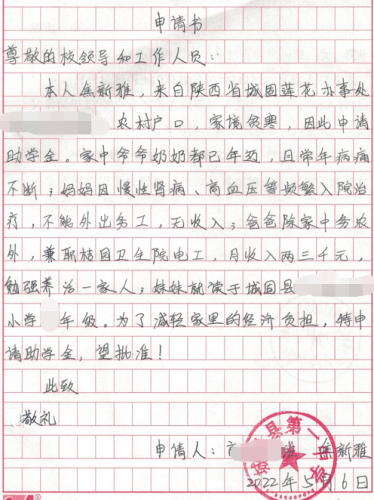 申请书
尊敬的校领导和工作人员：
本人焦新雅，来自陕西省城固莲花办事处
农村户口，家境贫寒，因此申请
助学金。家中爷爷奶奶都已年迈，且常年病痛
不断；妈妈因慢性肾病、高血压等频繁入院治
疗，不能外出务工，无收入；爸爸除家中务农
外，兼职桔园卫生院电工，月收入两三千元，
勉强养活一家人；妹妹就读于城固县
小学 年级。为了减轻家里的经济负担，特申
请助学金，望批准！
此致
敬礼
申请人：高 班 焦新雅
2022年5月6日
县第一中学